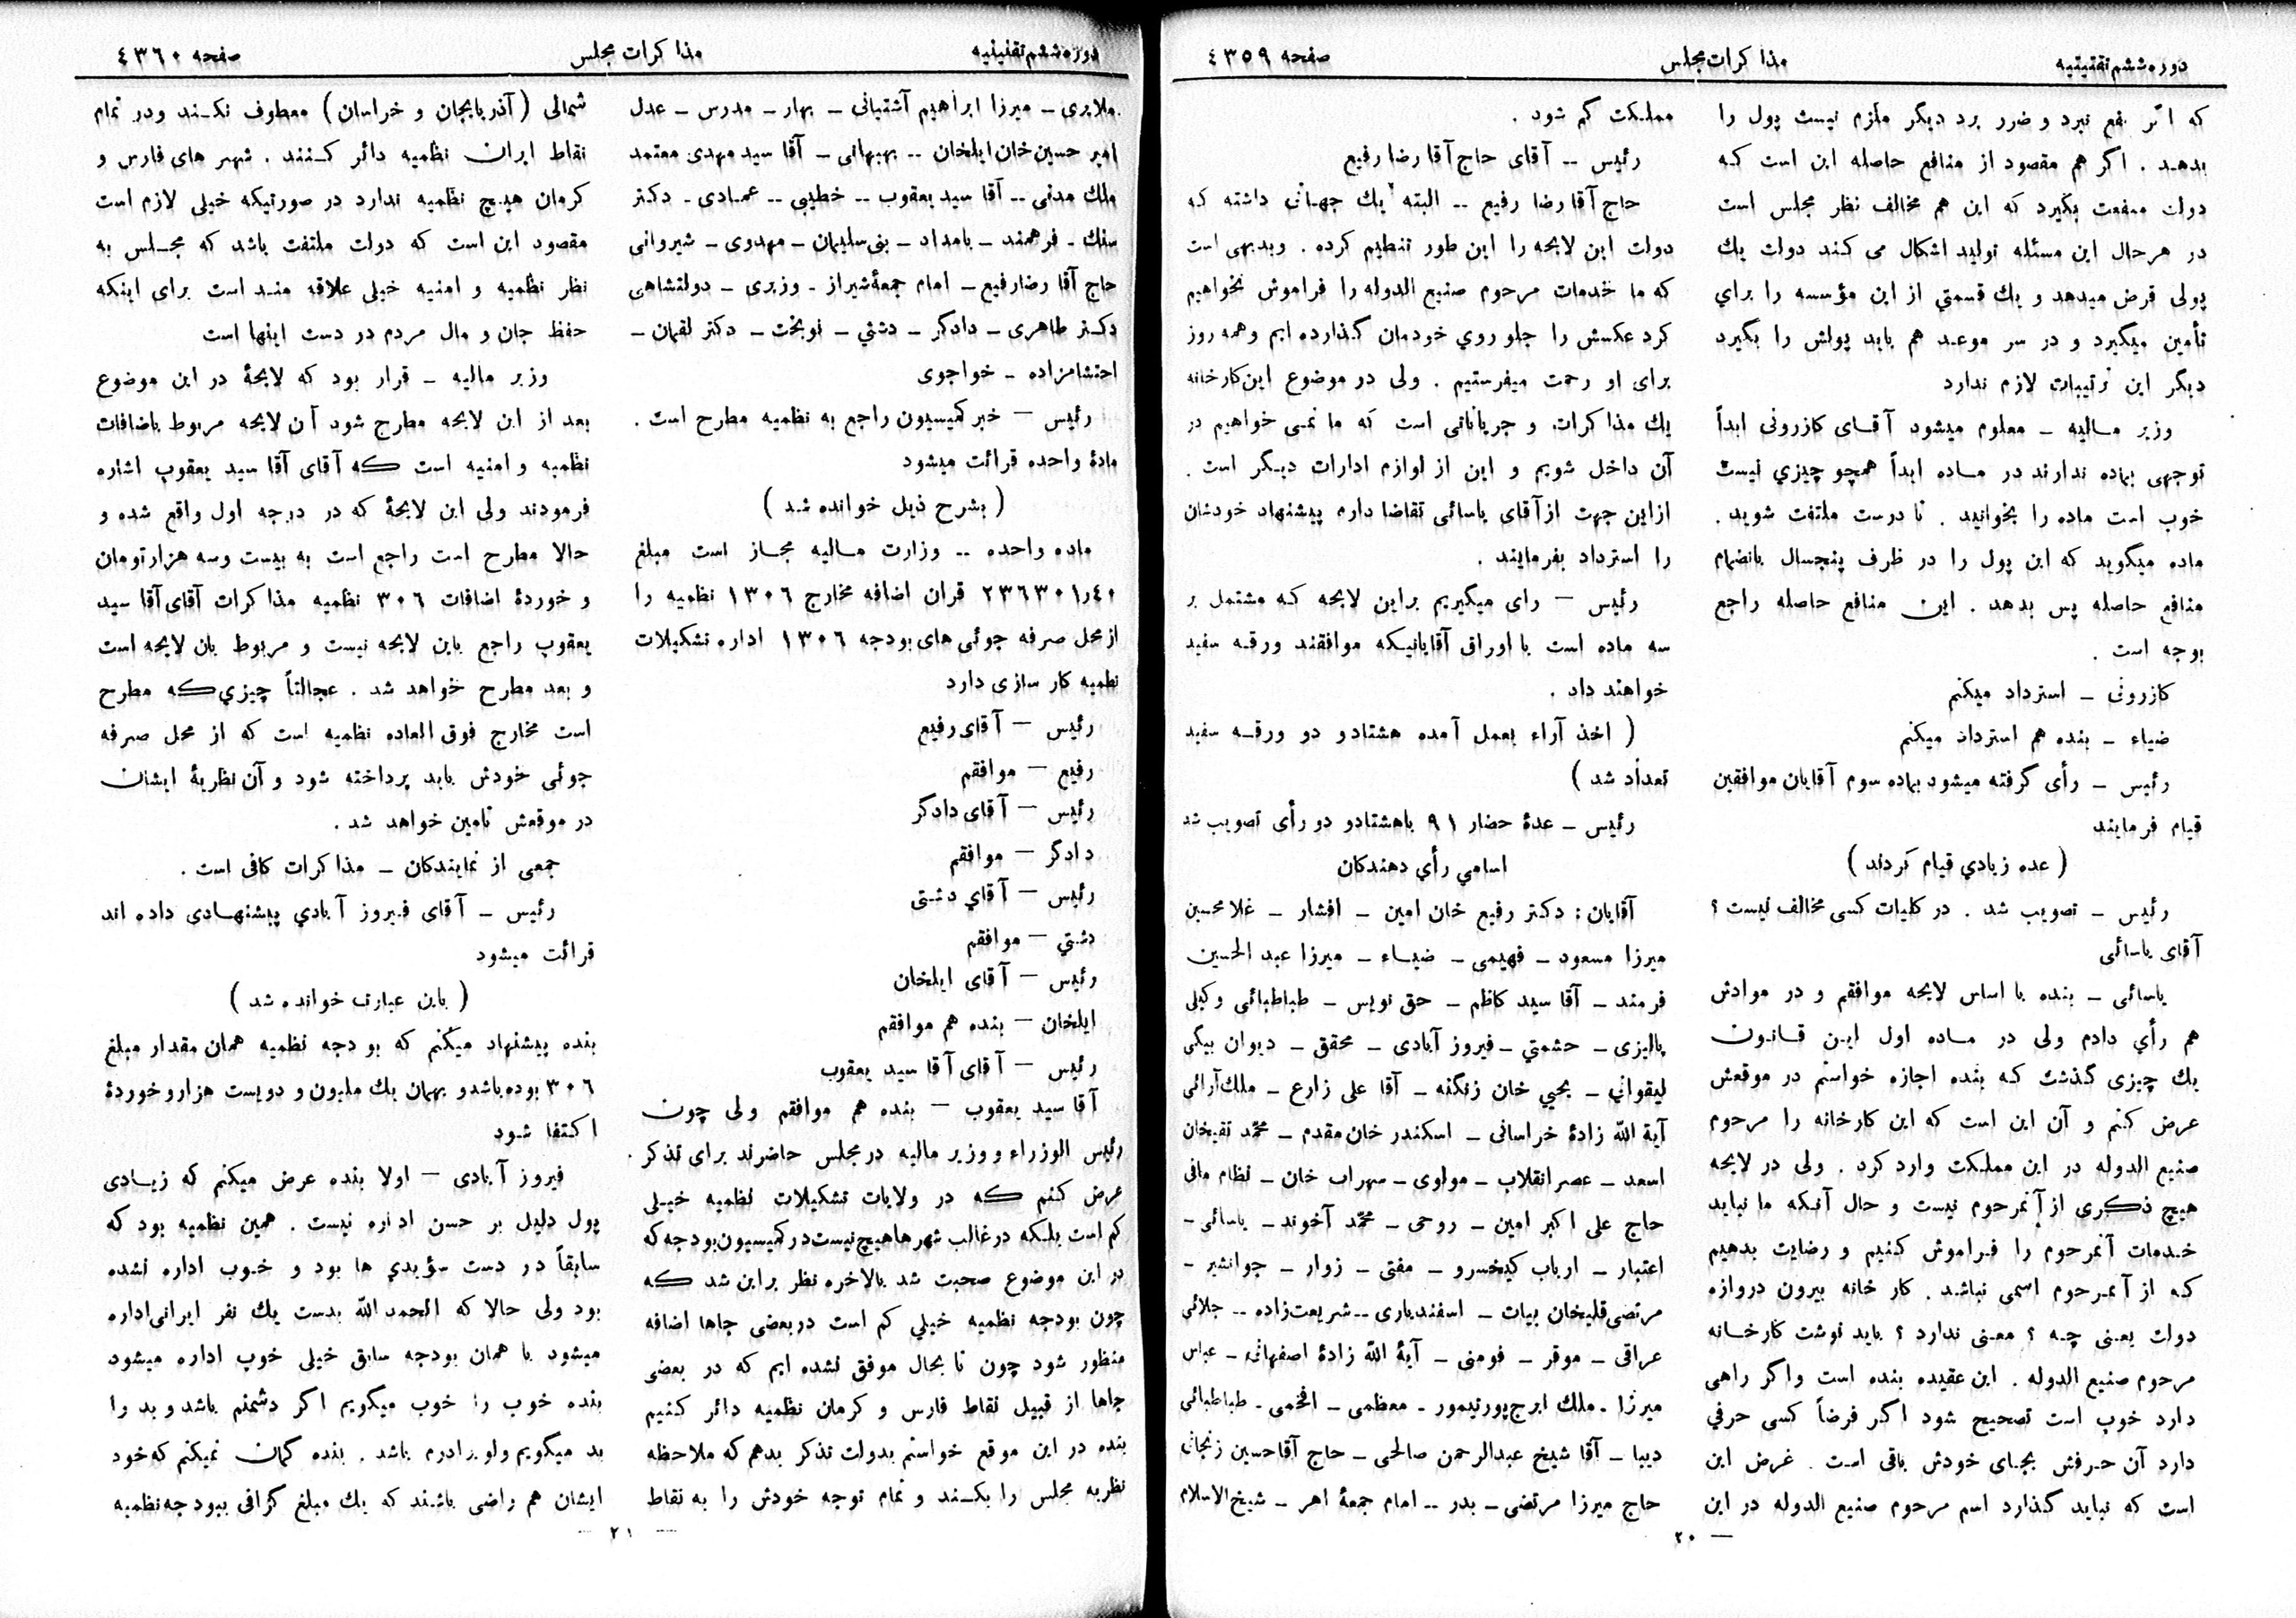 دوره ششم تقنینیه
مذاکرات مجلس
صفحه ٤٣٥٩
که اگر نفع نبرد و ضرر برد دیگر ملزم نیست پول را
بدهد . اگر هم مقصود از منافع حاصله این است که
دولت منفعت بگیرد که این هم مخالف نظر مجلس است
در هرحال این مسئله تولید اشکال می کند دولت یك
پولی قرض میدهد و یك قسمتي از این مؤسسه را براي
تأمین میگیرد و در سر موعد هم باید پولش را بگیرد
دیگر این ترتیبات لازم ندارد
وزیر مالیه ـ معلوم میشود آقای کازرونی ابداً
توجهی بماده ندارند در ماده ابداً همچو چیزي نیست
خوب است ماده را بخوانید . تا درست ملتفت شوید .
ماده میگوید که این پول را در ظرف پنجسال بانضمام
منافع حاصله پس بدهد . این منافع حاصله راجع
بوجه است .
کازرونی ـ استرداد میکنم
ضیاء ـ بنده هم استرداد میکنم
رئیس ـ رأی گرفته میشود بماده سوم آقایان موافقین
قیام فرمایند
( عده زیادي قیام کردند )
رئیس ـ تصویب شد . در کلیات کسی مخالف نیست ؟
آقای یاسائی
یاسائی ـ بنده با اساس لایحه موافقم و در موادش
هم رأي دادم ولی در ماده اول این قانون
یك چیزی گذشت که بنده اجازه خواستم در موقعش
عرض کنم و آن این است که این کارخانه را مرحوم
صنیع الدوله در این مملکت وارد کرد . ولی در لایحه
هیچ ذکری از آنمرحوم نیست و حال آنکه ما نباید
خدمات آنمرحوم را فراموش کنیم و رضایت بدهیم
که از آنمرحوم اسمی نباشد . کار خانه بیرون دروازه
دولت یعنی چه ؟ معنی ندارد ؟ باید نوشت کارخانه
مرحوم صنیع الدوله . این عقیده بنده است واگر راهی
دارد خوب است تصحیح شود اگر فرضاً کسی حرفي
دارد آن حرفش بجای خودش باقی است . غرض این
است که نباید گذارد اسم مرحوم صنیع الدوله در این
مملکت گم شود .
رئیس ـ آقای حاج آقا رضا رفیع
حاج آقا رضا رفیع ـ البته یك جهاتی داشته که
دولت این لایحه را این طور تنظیم کرده . وبدیهی است
که ما خدمات مرحوم صنیع الدوله را فراموش نخواهیم
کرد عکسش را جلو روي خودمان گذارده ایم وهمه روز
برای او رحمت میفرستیم . ولی در موضوع این کارخانه
یك مذاکرات و جریاناتی است که ما نمی خواهیم در
آن داخل شویم و این از لوازم ادارات دیگر است .
ازاین جهت از آقای یاسائی تقاضا دارم پیشنهاد خودشان
را استرداد بفرمایند .
رئیس ـ رای میگیریم براین لایحه که مشتمل بر
سه ماده است با اوراق آقایانیکه موافقند ورقه سفید
خواهند داد .
( اخذ آراء بعمل آمده هشتادو دو ورقه سفید
تعداد شد )
رئیس ـ عدۀ حضار ٩١ باهشتادو دو رأی تصویب شد
اسامي رأي دهندگان
آقایان : دکتر رفیع خان امین ـ افشار ـ غلامحسین
میرزا مسعود ـ فهیمی ـ ضیاء ـ میرزا عبد الحسین
فرمند ـ آقا سید کاظم ـ حق نویس ـ طباطبائی وکیلی
پالیزی ـ حشمتي ـ فیروز آبادی ـ محقق ـ دیوان بیگی
لیقوانی ـ یحیي خان زنگنه ـ آقا علی زارع ـ ملك آرائی
آیة الله زادۀ خراسانی ـ اسکندر خان مقدم ـ محمد تقیخان
اسعد ـ عصر انقلاب ـ مولوی ـ سهراب خان ـ نظام مافی
حاج علی اکبر امین ـ روحی ـ محمد آخوند ـ یاسائی ـ
اعتبار ـ ارباب کیخسرو ـ مفتی ـ زوار ـ جوانشیر ـ
مرتضی قلیخان بیات ـ اسفندیاری ـ شریعت زاده ـ جلائی
عراقی ـ موقر ـ فومنی ـ آیة الله زادۀ اصفهانی ـ عباس
میرزا ـ ملك ایرج پورتیمور ـ معظمی ـ افخمی ـ طباطبائی
دیبا ـ آقا شیخ عبدالرحمن صالحی ـ حاج آقا حسین زنجانی
حاج میرزا مرتضی ـ بدر ـ امام جمعۀ اهر ـ شیخ الاسلام
ـ ٢٠
دوره ششم تقنینیه
مذاکرات مجلس
صفحه ٤٣٦٠
ملایری ـ میرزا ابراهیم آشتیانی ـ بهار ـ مدرس ـ عدل
امیر حسین خان ایلخان ـ بهبهانی ـ آقا سید مهدی معتمد
ملك مدنی ـ آقا سید یعقوب ـ خطیبی ـ عمادی ـ دکتر
سنك ـ فرهمند ـ بامداد ـ بنی سلیمان ـ مهدوی ـ شیروانی
حاج آقا رضا رفیع ـ امام جمعۀ شیراز ـ وزیری ـ دولتشاهی
دکتر طاهری ـ دادگر ـ دشتي ـ نوبخت ـ دکتر لقمان ـ
احتشامزاده ـ خواجوی
رئیس ـ خبر کمیسیون راجع به نظمیه مطرح است .
مادۀ واحده قرائت میشود
( بشرح ذیل خوانده شد )
ماده واحده ـ وزارت مالیه مجاز است مبلغ
٢٣٦٣٠١٫٤٠ قران اضافه مخارج ١٣٠٦ نظمیه را
از محل صرفه جوئی های بودجه ١٣٠٦ اداره تشکیلات
نظمیه کار سازی دارد
رئیس ـ آقای رفیع
رفیع ـ موافقم
رئیس ـ آقای دادگر
دادگر ـ موافقم
رئیس ـ آقاي دشتی
دشتي ـ موافقم
رئیس ـ آقای ایلخان
ایلخان ـ بنده هم موافقم
رئیس ـ آقای آقا سید یعقوب
آقا سید یعقوب ـ بنده هم موافقم ولی چون
رئیس الوزراء و وزیر مالیه در مجلس حاضرند برای تذکر
عرض کنم که در ولایات تشکیلات نظمیه خیلی
کم است بلکه در غالب شهرها هیچ نیست در کمیسیون بودجه که
در این موضوع صحبت شد بالاخره نظر براین شد که
چون بودجه نظمیه خیلي کم است در بعضی جاها اضافه
منظور شود چون تا بحال موفق نشده ایم که در بعضی
جاها از قبیل نقاط فارس و کرمان نظمیه دائر کنیم
بنده در این موقع خواستم بدولت تذکر بدهم که ملاحظه
نظریه مجلس را بکنند و تمام توجه خودش را به نقاط
شمالی (آذربایجان و خراسان) معطوف نکنند ودر تمام
نقاط ایران نظمیه دائر کنند . شهر های فارس و
کرمان هیچ نظمیه ندارد در صورتیکه خیلی لازم است
مقصود این است که دولت ملتفت باشد که مجلس به
نظر نظمیه و امنیه خیلی علاقه مند است برای اینکه
حفظ جان و مال مردم در دست اینها است
وزیر مالیه ـ قرار بود که لایحۀ در این موضوع
بعد از این لایحه مطرح شود آن لایحه مربوط باضافات
نظمیه و امنیه است که آقای آقا سید یعقوب اشاره
فرمودند ولی این لایحۀ که در درجه اول واقع شده و
حالا مطرح است راجع است به بیست وسه هزار تومان
و خوردۀ اضافات ٣٠٦ نظمیه مذاکرات آقای آقا سید
یعقوب راجع باین لایحه نیست و مربوط بان لایحه است
و بعد مطرح خواهد شد . عجالتاً چیزي که مطرح
است مخارج فوق العاده نظمیه است که از محل صرفه
جوئی خودش باید پرداخته شود و آن نظریۀ ایشان
در موقعش تامین خواهد شد .
جمعی از نمایندگان ـ مذاکرات کافی است .
رئیس ـ آقای فیروز آبادي پیشنهادی داده اند
قرائت میشود
( باین عبارت خوانده شد )
بنده پیشنهاد میکنم که بودجه نظمیه همان مقدار مبلغ
٣٠٦ بوده باشدو بهمان یك ملیون و دویست هزار و خوردۀ
اکتفا شود
فیروز آبادی ـ اولا بنده عرض میکنم که زیادی
پول دلیل بر حسن اداره نیست . همین نظمیه بود که
سابقاً در دست سؤیدي ها بود و خوب اداره نشده
بود ولی حالا که الحمد الله بدست یك نفر ایرانی اداره
میشود با همان بودجه سابق خیلی خوب اداره میشود
بنده خوب را خوب میگویم اگر دشمنم باشد و بد را
بد میگویم ولو برادرم باشد . بنده گمان نمیکنم که خود
ایشان هم راضی باشند که یك مبلغ گزافی ببودجه نظمیه
ـ ٢١ ـ